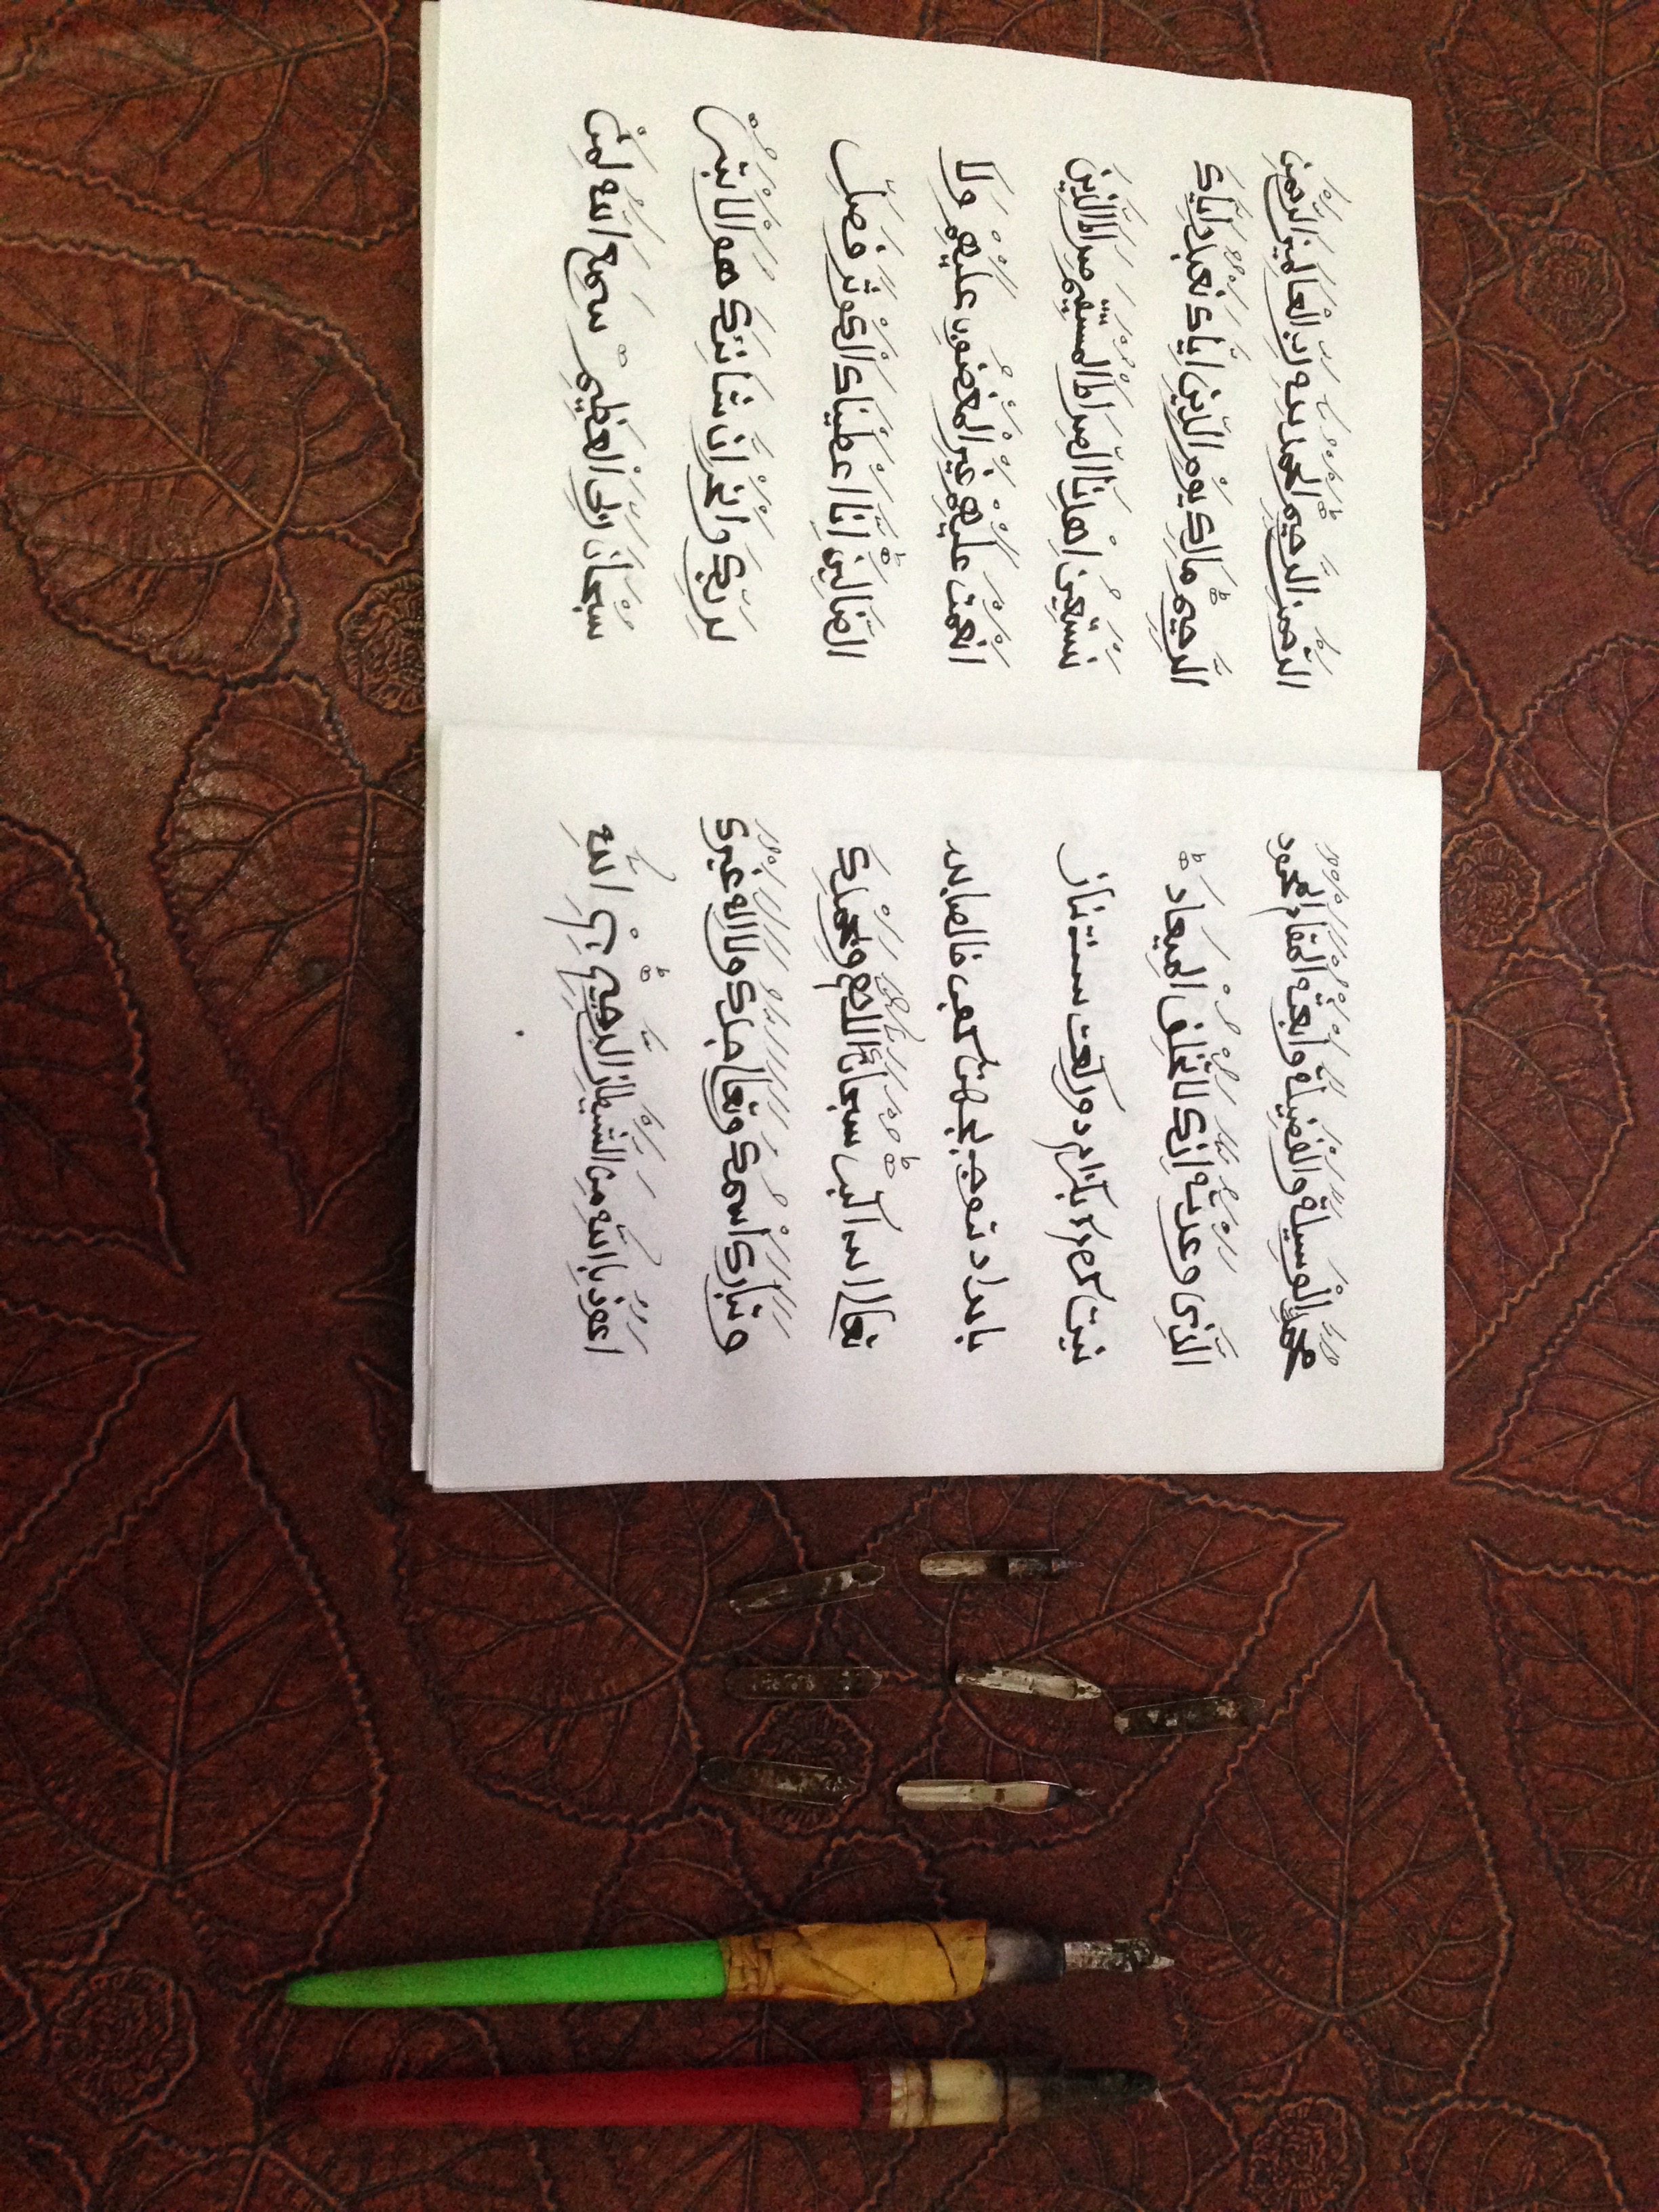 مُحَمَّدِ الْوَسِيلَةَ وَالْفَضِيلَةَ وَابْعَثْهُ الْمَقَامَ الْمَحْمُودَ
الَّذِى وَعَدْتَهُ اِنَّكَ لَا تُخْلِفُ الْمِيعَادَ ط
نیت کردم که بگزارم دو رکعت سنة نماز
بامداد توجه بجهت کعبه خالصا لله
تعالی الله اکبر ط سُبْحَانَكَ اللَّهُمَّ وَبِحَمْدِكَ
وَتَبَارَكَ اسْمُكَ وَتَعَالَ جَدُّكَ وَلَا اِلَهَ غَيْرُكَ
اَعُوْذُ بِاللَّهِ مِنَ الشَّيْطَانِ الرَّجِيمِ ط بِسْمِ اللَّهِ
الرَّحْمٰنِ الرَّحِيمِ ط الْحَمْدُ لِلَّهِ رَبِّ الْعَالَمِينَ الرَّحْمٰنِ
الرَّحِيمِ ط مَالِكِ يَوْمِ الدِّينِ اِيَّاكَ نَعْبُدُ وَاِيَّاكَ
نَسْتَعِينُ اِهْدِنَا الصِّرَاطَ الْمُسْتَقِيمَ صِرَاطَ الَّذِينَ
اَنْعَمْتَ عَلَيْهِمْ غَيْرِ الْمَغْضُوبِ عَلَيْهِمْ وَلَا
الضَّالِينَ ط اِنَّا اَعْطَيْنَاكَ الْكَوْثَرَ فَصَلِّ
لِرَبِّكَ وَانْحَرْ اِنَّ شَانِئَكَ هُوَ الْاَبْتَرُ ط
سُبْحَانَ رَبِّيَ الْعَظِيمِ ط سَمِعَ اللَّهُ لِمَنْ